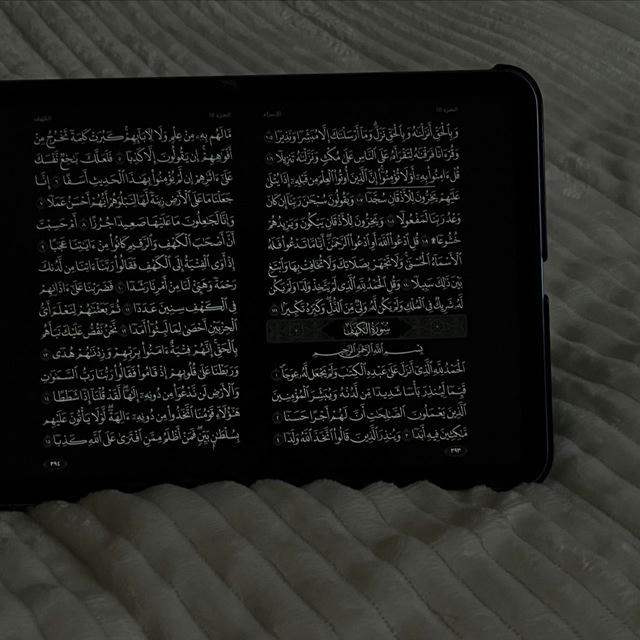 الجزء ١٥ الإسراء
وَبِٱلْحَقِّ أَنزَلْنَٰهُ وَبِٱلْحَقِّ نَزَلَ وَمَآ أَرْسَلْنَٰكَ إِلَّا مُبَشِّرًا وَنَذِيرًا ١٠٥
وَقُرْءَانًا فَرَقْنَٰهُ لِتَقْرَأَهُۥ عَلَى ٱلنَّاسِ عَلَىٰ مُكْثٍ وَنَزَّلْنَٰهُ تَنزِيلًا ١٠٦
قُلْ ءَامِنُوا۟ بِهِۦٓ أَوْ لَا تُؤْمِنُوٓا۟ إِنَّ ٱلَّذِينَ أُوتُوا۟ ٱلْعِلْمَ مِن قَبْلِهِۦٓ إِذَا يُتْلَىٰ
عَلَيْهِمْ يَخِرُّونَ لِلْأَذْقَانِ سُجَّدًا ١٠٧ وَيَقُولُونَ سُبْحَٰنَ رَبِّنَآ إِن كَانَ
وَعْدُ رَبِّنَا لَمَفْعُولًا ١٠٨ وَيَخِرُّونَ لِلْأَذْقَانِ يَبْكُونَ وَيَزِيدُهُمْ
خُشُوعًا ۩ ١٠٩ قُلِ ٱدْعُوا۟ ٱللَّهَ أَوِ ٱدْعُوا۟ ٱلرَّحْمَٰنَ أَيًّا مَّا تَدْعُوا۟ فَلَهُ
ٱلْأَسْمَآءُ ٱلْحُسْنَىٰ وَلَا تَجْهَرْ بِصَلَاتِكَ وَلَا تُخَافِتْ بِهَا وَٱبْتَغِ
بَيْنَ ذَٰلِكَ سَبِيلًا ١١٠ وَقُلِ ٱلْحَمْدُ لِلَّهِ ٱلَّذِى لَمْ يَتَّخِذْ وَلَدًا وَلَمْ يَكُن
لَّهُۥ شَرِيكٌ فِى ٱلْمُلْكِ وَلَمْ يَكُن لَّهُۥ وَلِىٌّ مِّنَ ٱلذُّلِّ وَكَبِّرْهُ تَكْبِيرًۢا ١١١
سُورَةُ الكَهْفِ
بِسْمِ ٱللَّهِ ٱلرَّحْمَٰنِ ٱلرَّحِيمِ
ٱلْحَمْدُ لِلَّهِ ٱلَّذِىٓ أَنزَلَ عَلَىٰ عَبْدِهِ ٱلْكِتَٰبَ وَلَمْ يَجْعَل لَّهُۥ عِوَجَا ١
قَيِّمًا لِّيُنذِرَ بَأْسًا شَدِيدًا مِّن لَّدُنْهُ وَيُبَشِّرَ ٱلْمُؤْمِنِينَ
ٱلَّذِينَ يَعْمَلُونَ ٱلصَّٰلِحَٰتِ أَنَّ لَهُمْ أَجْرًا حَسَنًا ٢
مَّٰكِثِينَ فِيهِ أَبَدًا ٣ وَيُنذِرَ ٱلَّذِينَ قَالُوا۟ ٱتَّخَذَ ٱللَّهُ وَلَدًا ٤
٢٩٣
الجزء ١٥ الكهف
مَّا لَهُم بِهِۦ مِنْ عِلْمٍ وَلَا لِءَابَآئِهِمْ كَبُرَتْ كَلِمَةً تَخْرُجُ مِنْ
أَفْوَٰهِهِمْ إِن يَقُولُونَ إِلَّا كَذِبًا ٥ فَلَعَلَّكَ بَٰخِعٌ نَّفْسَكَ
عَلَىٰٓ ءَاثَٰرِهِمْ إِن لَّمْ يُؤْمِنُوا۟ بِهَٰذَا ٱلْحَدِيثِ أَسَفًا ٦ إِنَّا
جَعَلْنَا مَا عَلَى ٱلْأَرْضِ زِينَةً لَّهَا لِنَبْلُوَهُمْ أَيُّهُمْ أَحْسَنُ عَمَلًا ٧
وَإِنَّا لَجَٰعِلُونَ مَا عَلَيْهَا صَعِيدًا جُرُزًا ٨ أَمْ حَسِبْتَ
أَنَّ أَصْحَٰبَ ٱلْكَهْفِ وَٱلرَّقِيمِ كَانُوا۟ مِنْ ءَايَٰتِنَا عَجَبًا ٩
إِذْ أَوَى ٱلْفِتْيَةُ إِلَى ٱلْكَهْفِ فَقَالُوا۟ رَبَّنَآ ءَاتِنَا مِن لَّدُنكَ
رَحْمَةً وَهَيِّئْ لَنَا مِنْ أَمْرِنَا رَشَدًا ١٠ فَضَرَبْنَا عَلَىٰٓ ءَاذَانِهِمْ
فِى ٱلْكَهْفِ سِنِينَ عَدَدًا ١١ ثُمَّ بَعَثْنَٰهُمْ لِنَعْلَمَ أَىُّ
ٱلْحِزْبَيْنِ أَحْصَىٰ لِمَا لَبِثُوٓا۟ أَمَدًا ١٢ نَّحْنُ نَقُصُّ عَلَيْكَ نَبَأَهُم
بِٱلْحَقِّ إِنَّهُمْ فِتْيَةٌ ءَامَنُوا۟ بِرَبِّهِمْ وَزِدْنَٰهُمْ هُدًى ١٣
وَرَبَطْنَا عَلَىٰ قُلُوبِهِمْ إِذْ قَامُوا۟ فَقَالُوا۟ رَبُّنَا رَبُّ ٱلسَّمَٰوَٰتِ
وَٱلْأَرْضِ لَن نَّدْعُوَا۟ مِن دُونِهِۦٓ إِلَٰهًا لَّقَدْ قُلْنَآ إِذًا شَطَطًا ١٤
هَٰٓؤُلَآءِ قَوْمُنَا ٱتَّخَذُوا۟ مِن دُونِهِۦٓ ءَالِهَةً لَّوْلَا يَأْتُونَ عَلَيْهِم
بِسُلْطَٰنٍۭ بَيِّنٍ فَمَنْ أَظْلَمُ مِمَّنِ ٱفْتَرَىٰ عَلَى ٱللَّهِ كَذِبًا ١٥
٢٩٤